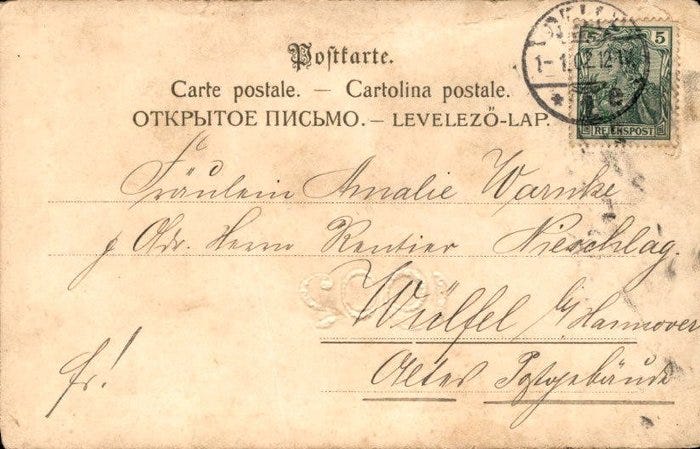 Postkarte.
Carte postale. — Cartolina postale.
ОТКРЫТОЕ ПИСЬМО. — LEVELEZŐ-LAP.
5 5
REICHSPOST
1-1.02.12-1
* e
Fräulein Amalie Warnke
p Adr. Herrn Rentier Nieschlag.
Wülfel b/Hannover
Altes Postgebäude
fr!